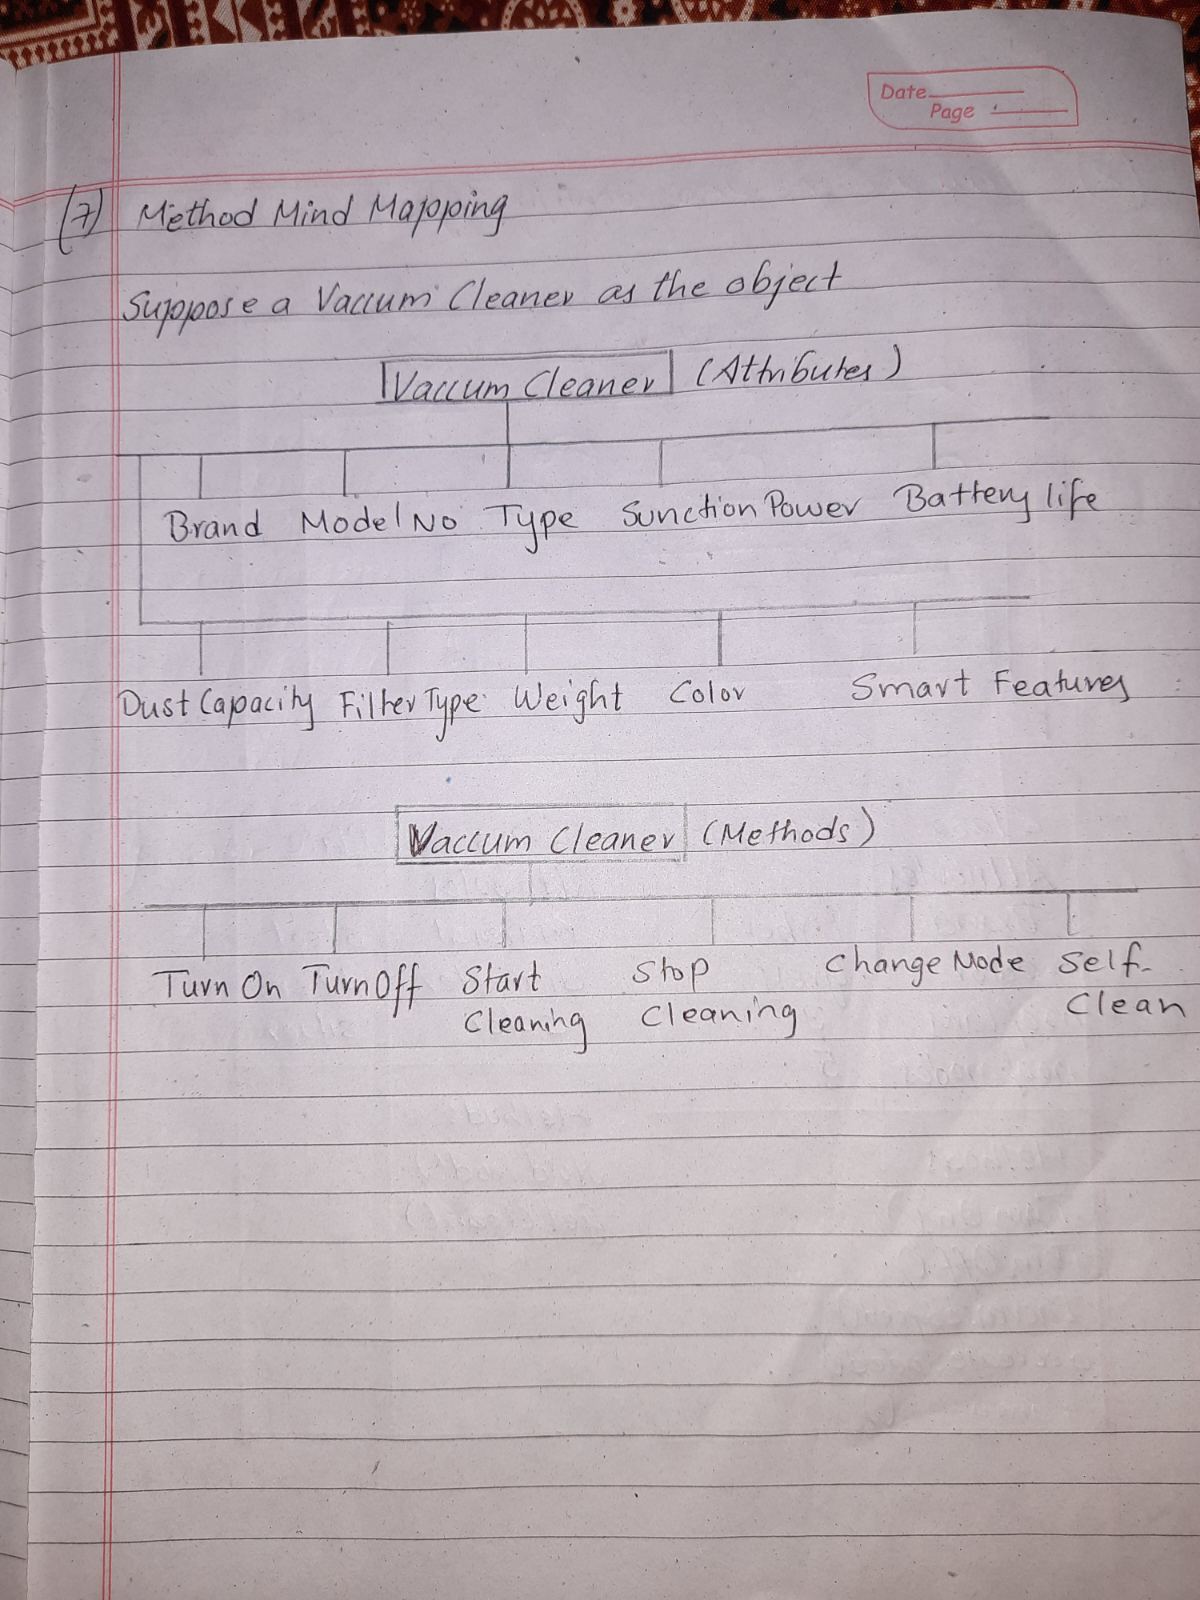 Date
Page
(7) Method Mind Mapping
Suppose a Vaccum Cleaner as the object
Vaccum Cleaner (Attributes)
Brand Model No Type Sunction Power Battery life
Dust Capacity Filter Type Weight Color Smart Features
Vaccum Cleaner (Methods)
Turn On Turn Off Start Stop Change Mode Self-
Cleaning Cleaning Clean